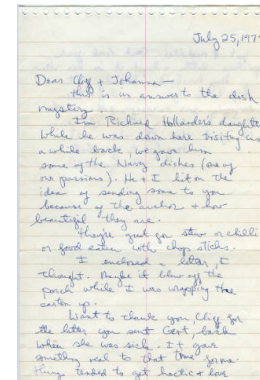 July 25, 197
Dear Cliff & Johanna —
This is in answer to the dish
mystery.
I'm Richard Hollander's daughter
While he was down here visiting us
a while back, we gave him
some of the Navy dishes (one of
our passions). He & I hit on the
idea of sending some to you
because of the anchor & how
beautiful they are.
They're just for stew or chili
or good eaten with chop sticks.
I enclosed a letter, I
thought. Maybe it blew off the
porch while I was wrapping the
carton up.
Want to thank you Cliff for
the letter you sent Gert, back
when she was sick. It gave
something real to that time for me.
Things tended to get hectic &